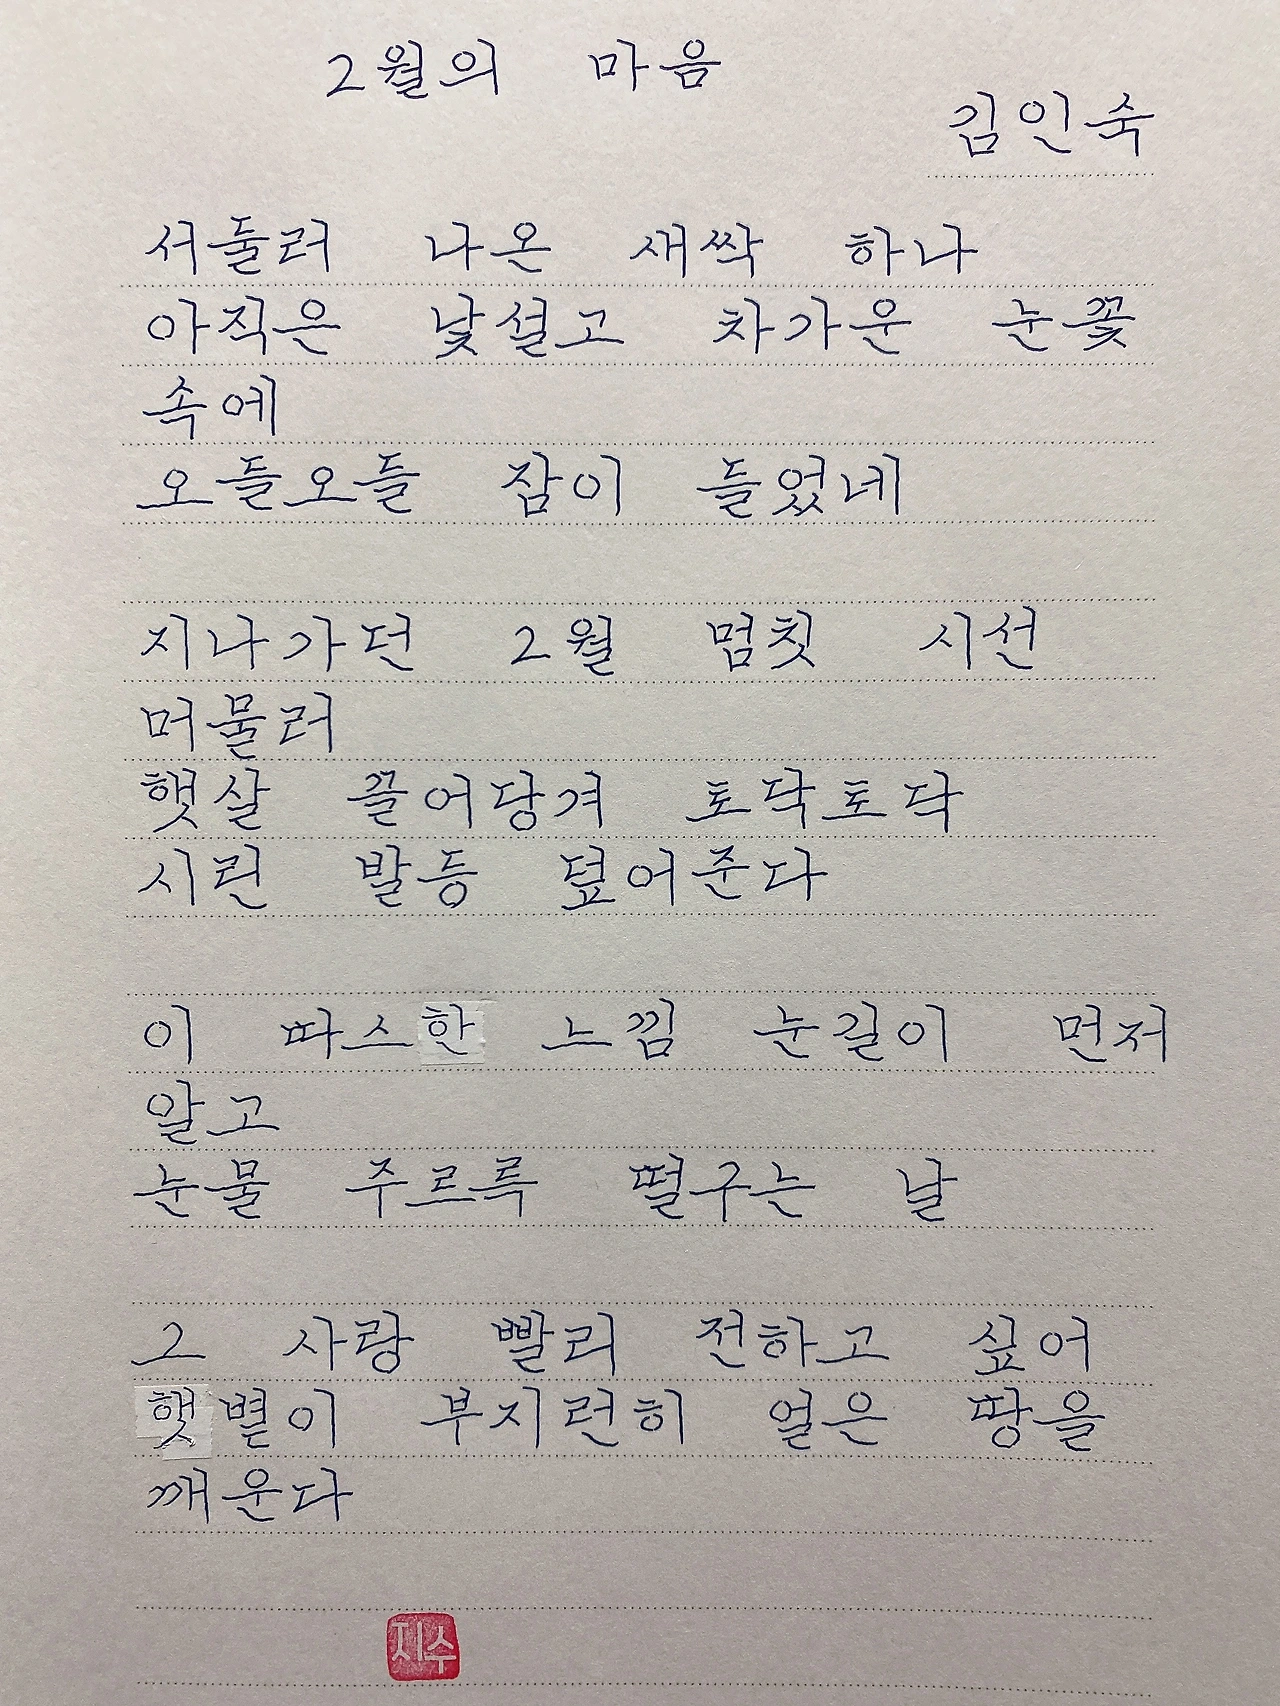 2월의 마음
김인숙
서둘러 나온 새싹 하나
아직은 낯설고 차가운 눈꽃
속에
오들오들 잠이 들었네
지나가던 2월 멈칫 시선
머물러
햇살 끌어당겨 토닥토닥
시린 발등 덮어준다
이 따스한 느낌 눈길이 먼저
알고
눈물 주르륵 떨구는 날
그 사랑 빨리 전하고 싶어
햇볕이 부지런히 얼은 땅을
깨운다
지수